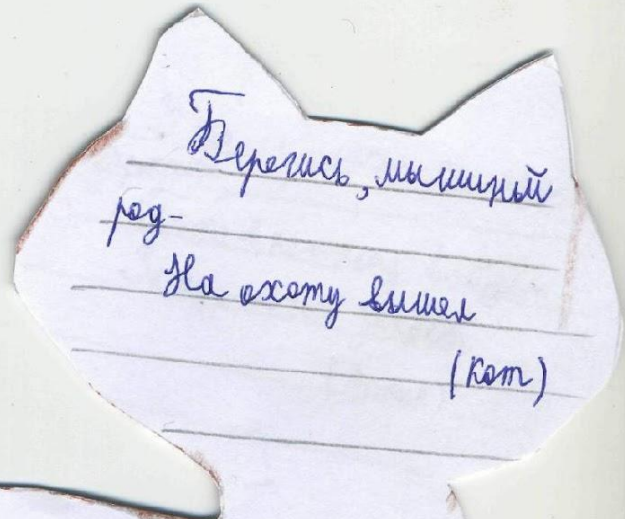 Берегись, мышиный
род-
На охоту вышел
(Кот)